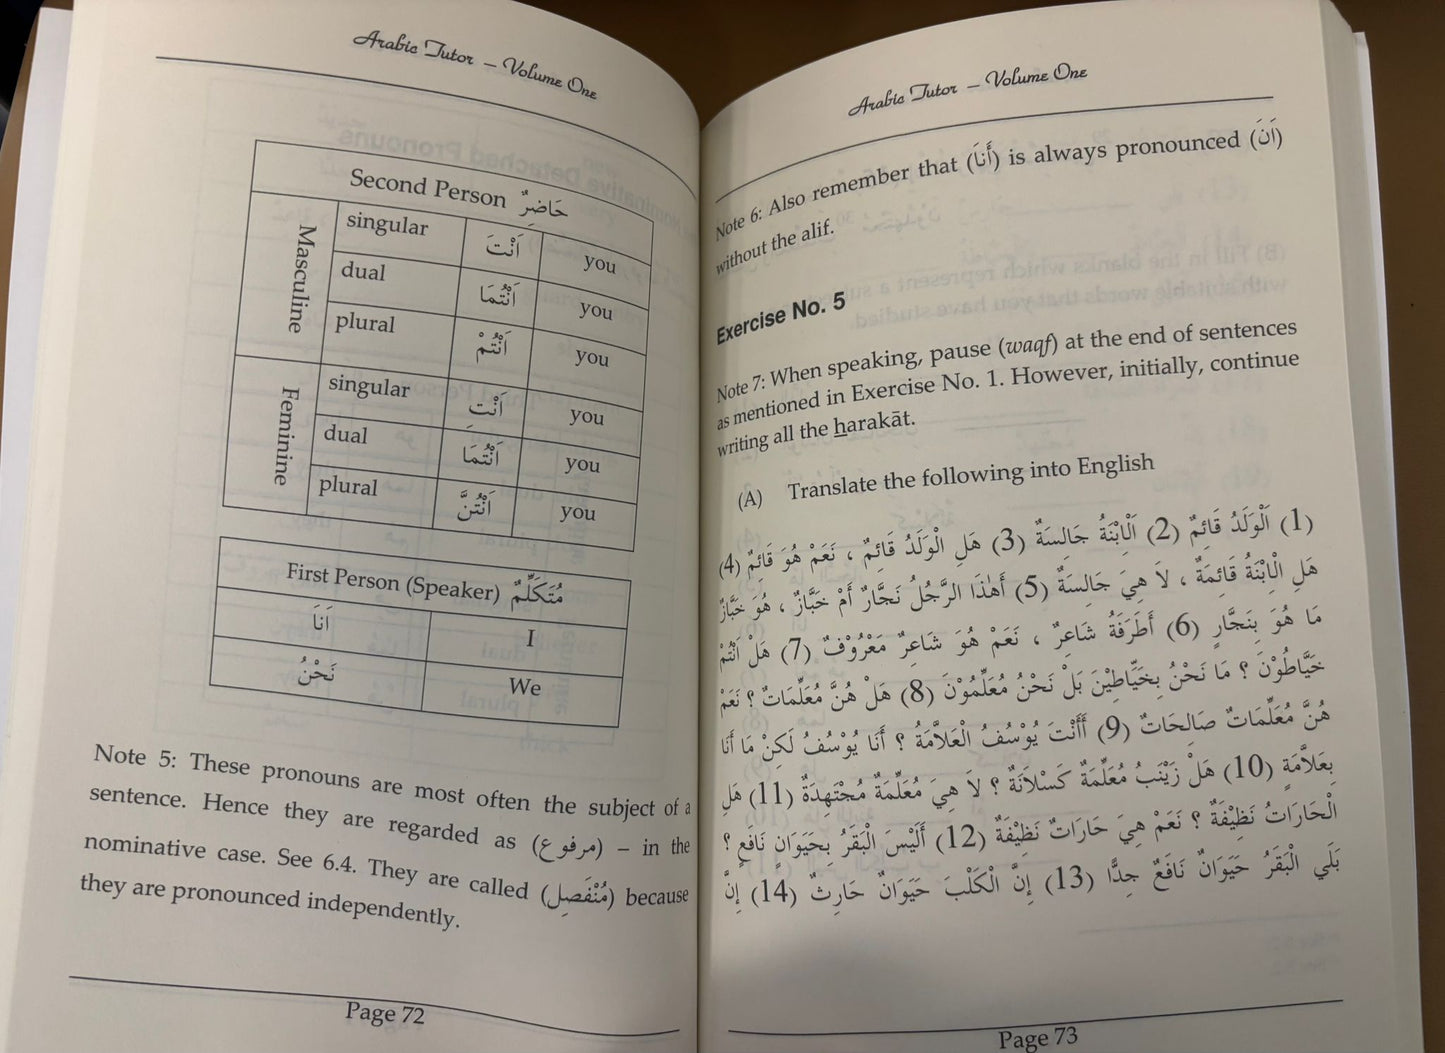 Arabic Tutor – Volume One
Second Person حَاضِرٌ
Masculine
singular اَنْتَ you
dual اَنْتُمَا you
plural اَنْتُمْ you
Feminine
singular اَنْتِ you
dual اَنْتُمَا you
plural اَنْتُنَّ you
First Person (Speaker) مُتَكَلِّمٌ
اَنَا I
نَحْنُ We
Note 5: These pronouns are most often the subject of a
sentence. Hence they are regarded as (مرفوع) – in the
nominative case. See 6.4. They are called (مُنْفَصِل) because
they are pronounced independently.
Page 72
Arabic Tutor – Volume One
Note 6: Also remember that (أَنَا) is always pronounced (اَنَ)
without the alif.
Exercise No. 5
Note 7: When speaking, pause (waqf) at the end of sentences
as mentioned in Exercise No. 1. However, initially, continue
writing all the harakāt.
(A) Translate the following into English
(1) اَلْوَلَدُ قَائِمٌ (2) اَلْاِبْنَةُ جَالِسَةٌ (3) هَلِ الْوَلَدُ قَائِمٌ ، نَعَمْ هُوَ قَائِمٌ (4)
هَلِ الْاِبْنَةُ قَائِمَةٌ ، لاَ هِيَ جَالِسَةٌ (5) أَهٰذَا الرَّجُلُ نَجَّارٌ أَمْ خَبَّازٌ ، هُوَ خَبَّازٌ
مَا هُوَ بِنَجَّارٍ (6) أَطَرَفَةُ شَاعِرٌ ، نَعَمْ هُوَ شَاعِرٌ مَعْرُوْفٌ (7) هَلْ اَنْتُمْ
خَيَّاطُوْنَ ؟ مَا نَحْنُ بِخَيِّاطِيْنَ بَلْ نَحْنُ مُعَلِّمُوْنَ (8) هَلْ هُنَّ مُعَلِّمَاتٌ ؟ نَعَمْ
هُنَّ مُعَلِّمَاتٌ صَالِحَاتٌ (9) أَأَنْتَ يُوْسُفُ الْعَلاَّمَةُ ؟ أَنَا يُوْسُفُ لَكِنْ مَا أَنَا
بِعَلاَّمَةٍ (10) هَلْ زَيْنَبُ مُعَلِّمَةٌ كَسْلاَنَةٌ ؟ لاَ هِيَ مُعَلِّمَةٌ مُجْتَهِدَةٌ (11) هَلِ
الْحَارَاتُ نَظِيْفَةٌ ؟ نَعَمْ هِيَ حَارَاتٌ نَظِيْفَةٌ (12) أَلَيْسَ الْبَقَرُ بِحَيَوَانٍ نَافَعٍ ؟
بَلَي الْبَقَرُ حَيَوَانٌ نَافَعٌ جِدًّا (13) إِنَّ الْكَلْبَ حَيَوَانٌ حَارِثٌ (14) إِنَّ
Page 73